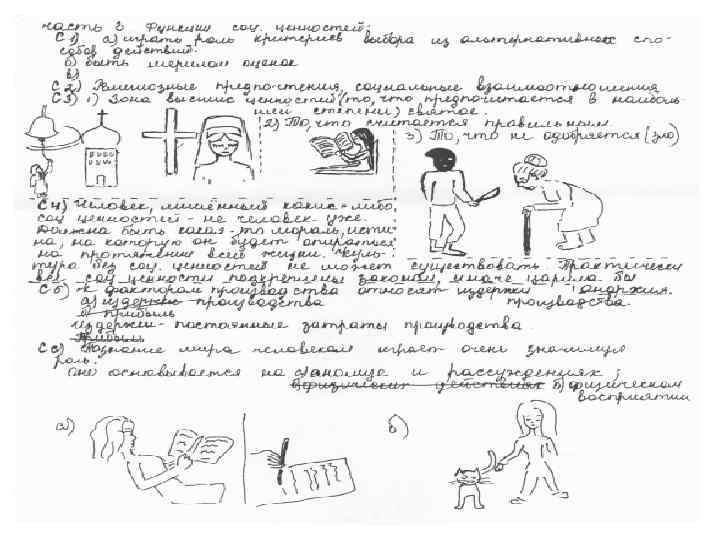 часть 2 Функции соц. ценностей:
С1) а) играть роль критериев выбора из альтернативных спо-
собов действий.
б) быть мерилом оценок
в)
С2) Религиозные предпочтения, социальные взаимоотношения
С3) 1) Зона высших ценностей (то, что предпочитается в наиболь
шей степени) святое.
2) То, что считается правильным.
3) То, что не одобряется (зло)
С4) Человек, лишённый каких-либо
соц ценностей - не человек уже.
Должна быть какая-то мораль, исти
на, на которую он будет опираться
на протяжении всей жизни. Куль-
тура без соц. ценностей не может существовать. Практически
все соц ценности подкреплены законом, иначе царила бы
анархия.
С5) К факторам производства относят издержки производства.
а) издержки производства
б прибыль
издержки - постоянные затраты производства.
Прибыль
С6) Познание мира человеком играет очень значимую
роль.
Оно основывается на а) анализе и рассуждениях;
в физических действиях б) физическом
восприятии
а)
б)